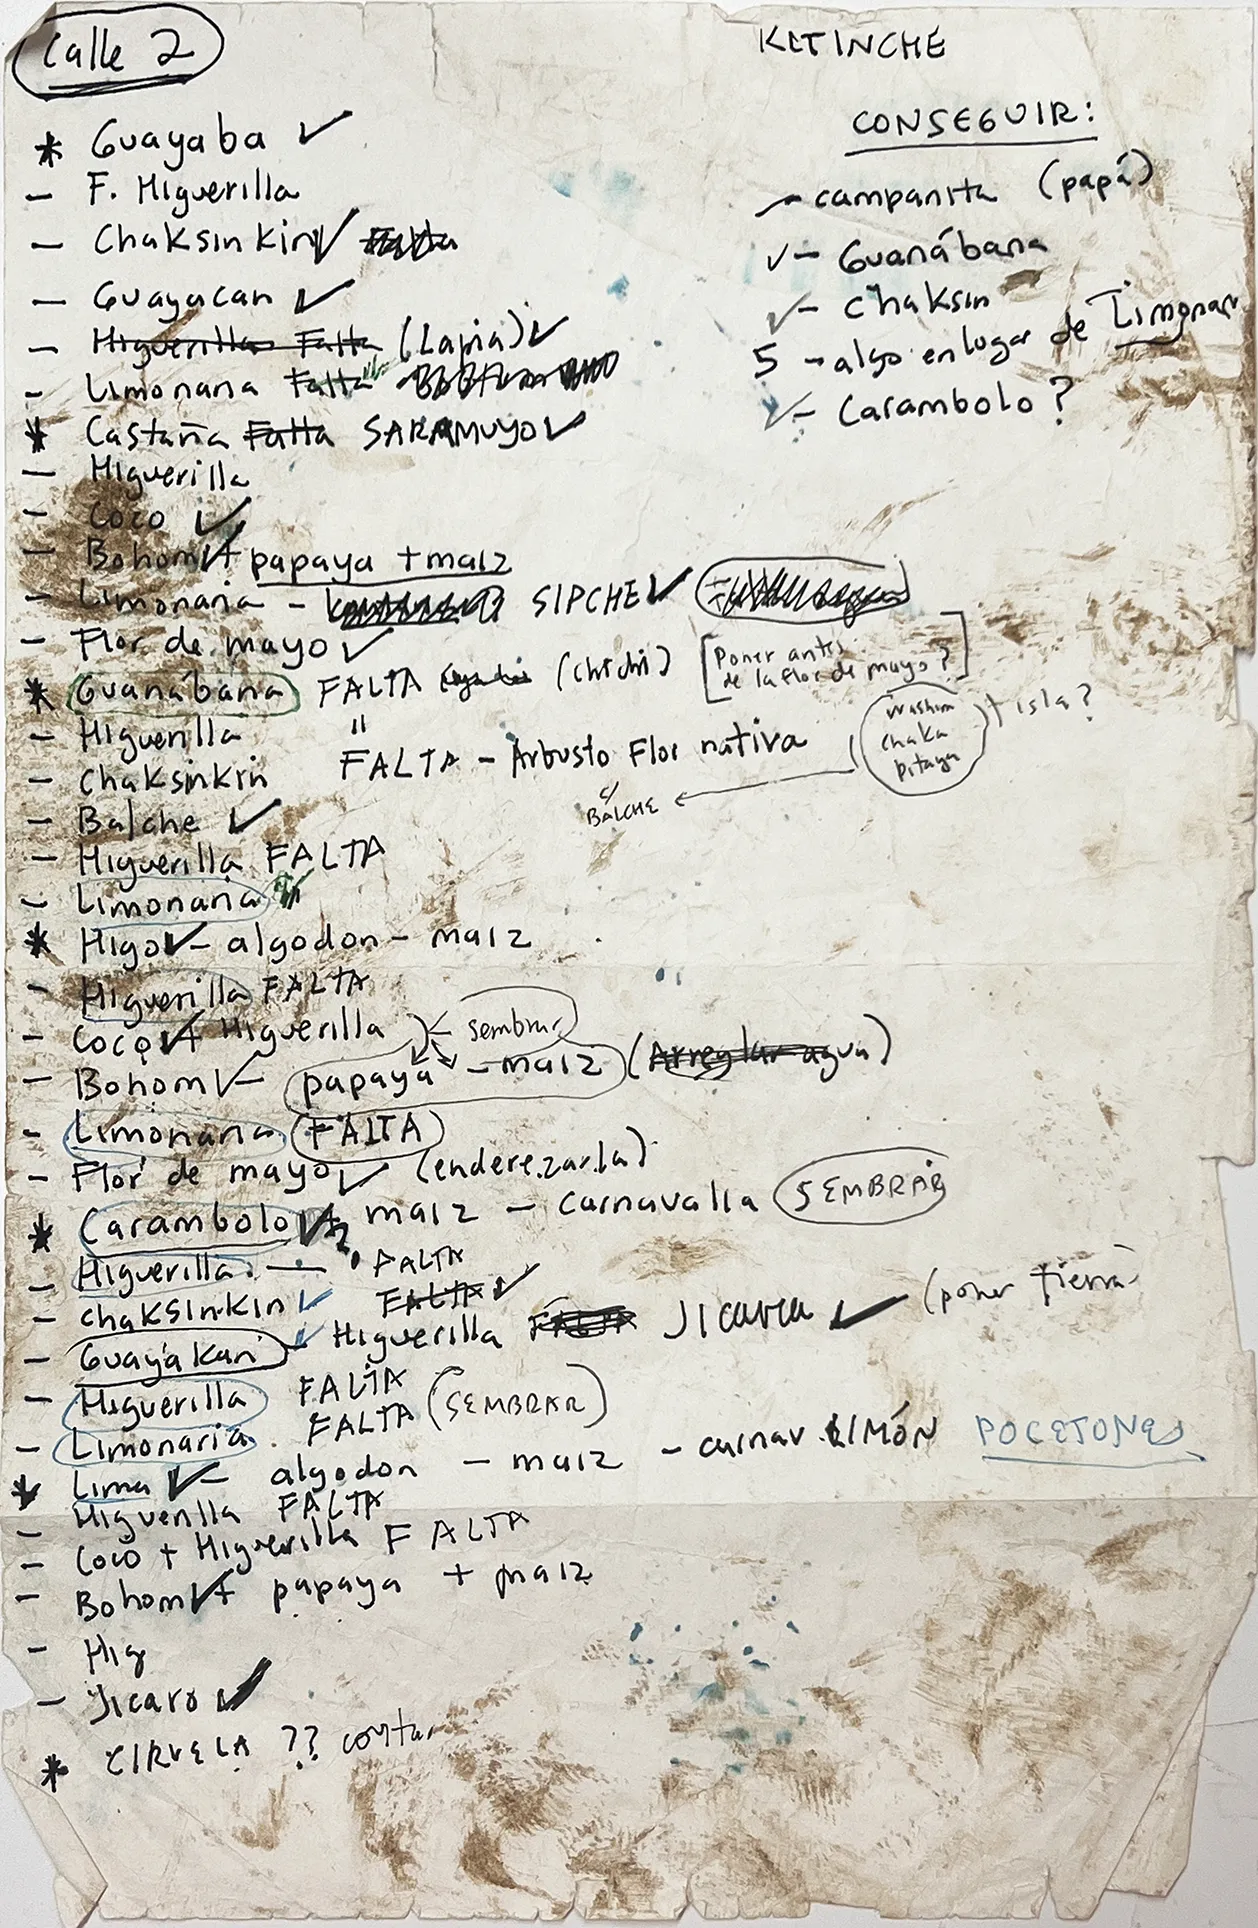 Calle 2
KITINCHE
* Guayaba ✓
- F. Higuerilla
- Chaksinkin ✓ Falta
- Guayacan ✓
- Higuerilla Falta (Lapia) ✓
- Limonaria Falta
* Castaña Falta SARAMUYO ✓
- Higuerilla
- Coco ✓
- Bohom ✓ + papaya + maiz
- Limonaria - SIPCHE ✓
- Flor de mayo ✓
* Guanábana FALTA (chichi) [Poner antes de la flor de mayo?]
- Higuerilla "
- Chaksinkin FALTA - Arbusto Flor nativa (
chaka
pitaya
+ isla?
c/ BALCHE
- Balche ✓
- Higuerilla FALTA
- Limonaria
* Higo ✓ - algodon - maiz
- Higuerilla FALTA
- Coco ✓ + Higuerilla sembrar
- Bohom ✓ - papaya - maiz (Arreglar agua)
- Limonaria (FALTA)
- Flor de mayo ✓ (enderezarla)
* Carambolo ✓ maiz - Carnavalia SEMBRAR
- Higuerilla. — FALTA
- Chaksinkin ✓ FALTA ✓
- Guayakan ✓ Higuerilla FALTA JICARA ✓ (poner tierra)
- Higuerilla FALTA
- Limonaria FALTA (SEMBRAR)
* Lima ✓ - algodon - maiz - carnav. LIMÓN POCETONES
- Higuerilla FALTA
- Coco + Higuerilla FALTA
- Bohom ✓ + papaya + maiz
- Hig
- Jicaro ✓
* CIRUELA ??
CONSEGUIR:
- campanita (papá)
✓ - Guanábana
✓ - chaksin
5 - algo en lugar de Limonar
✓ - Carambolo?